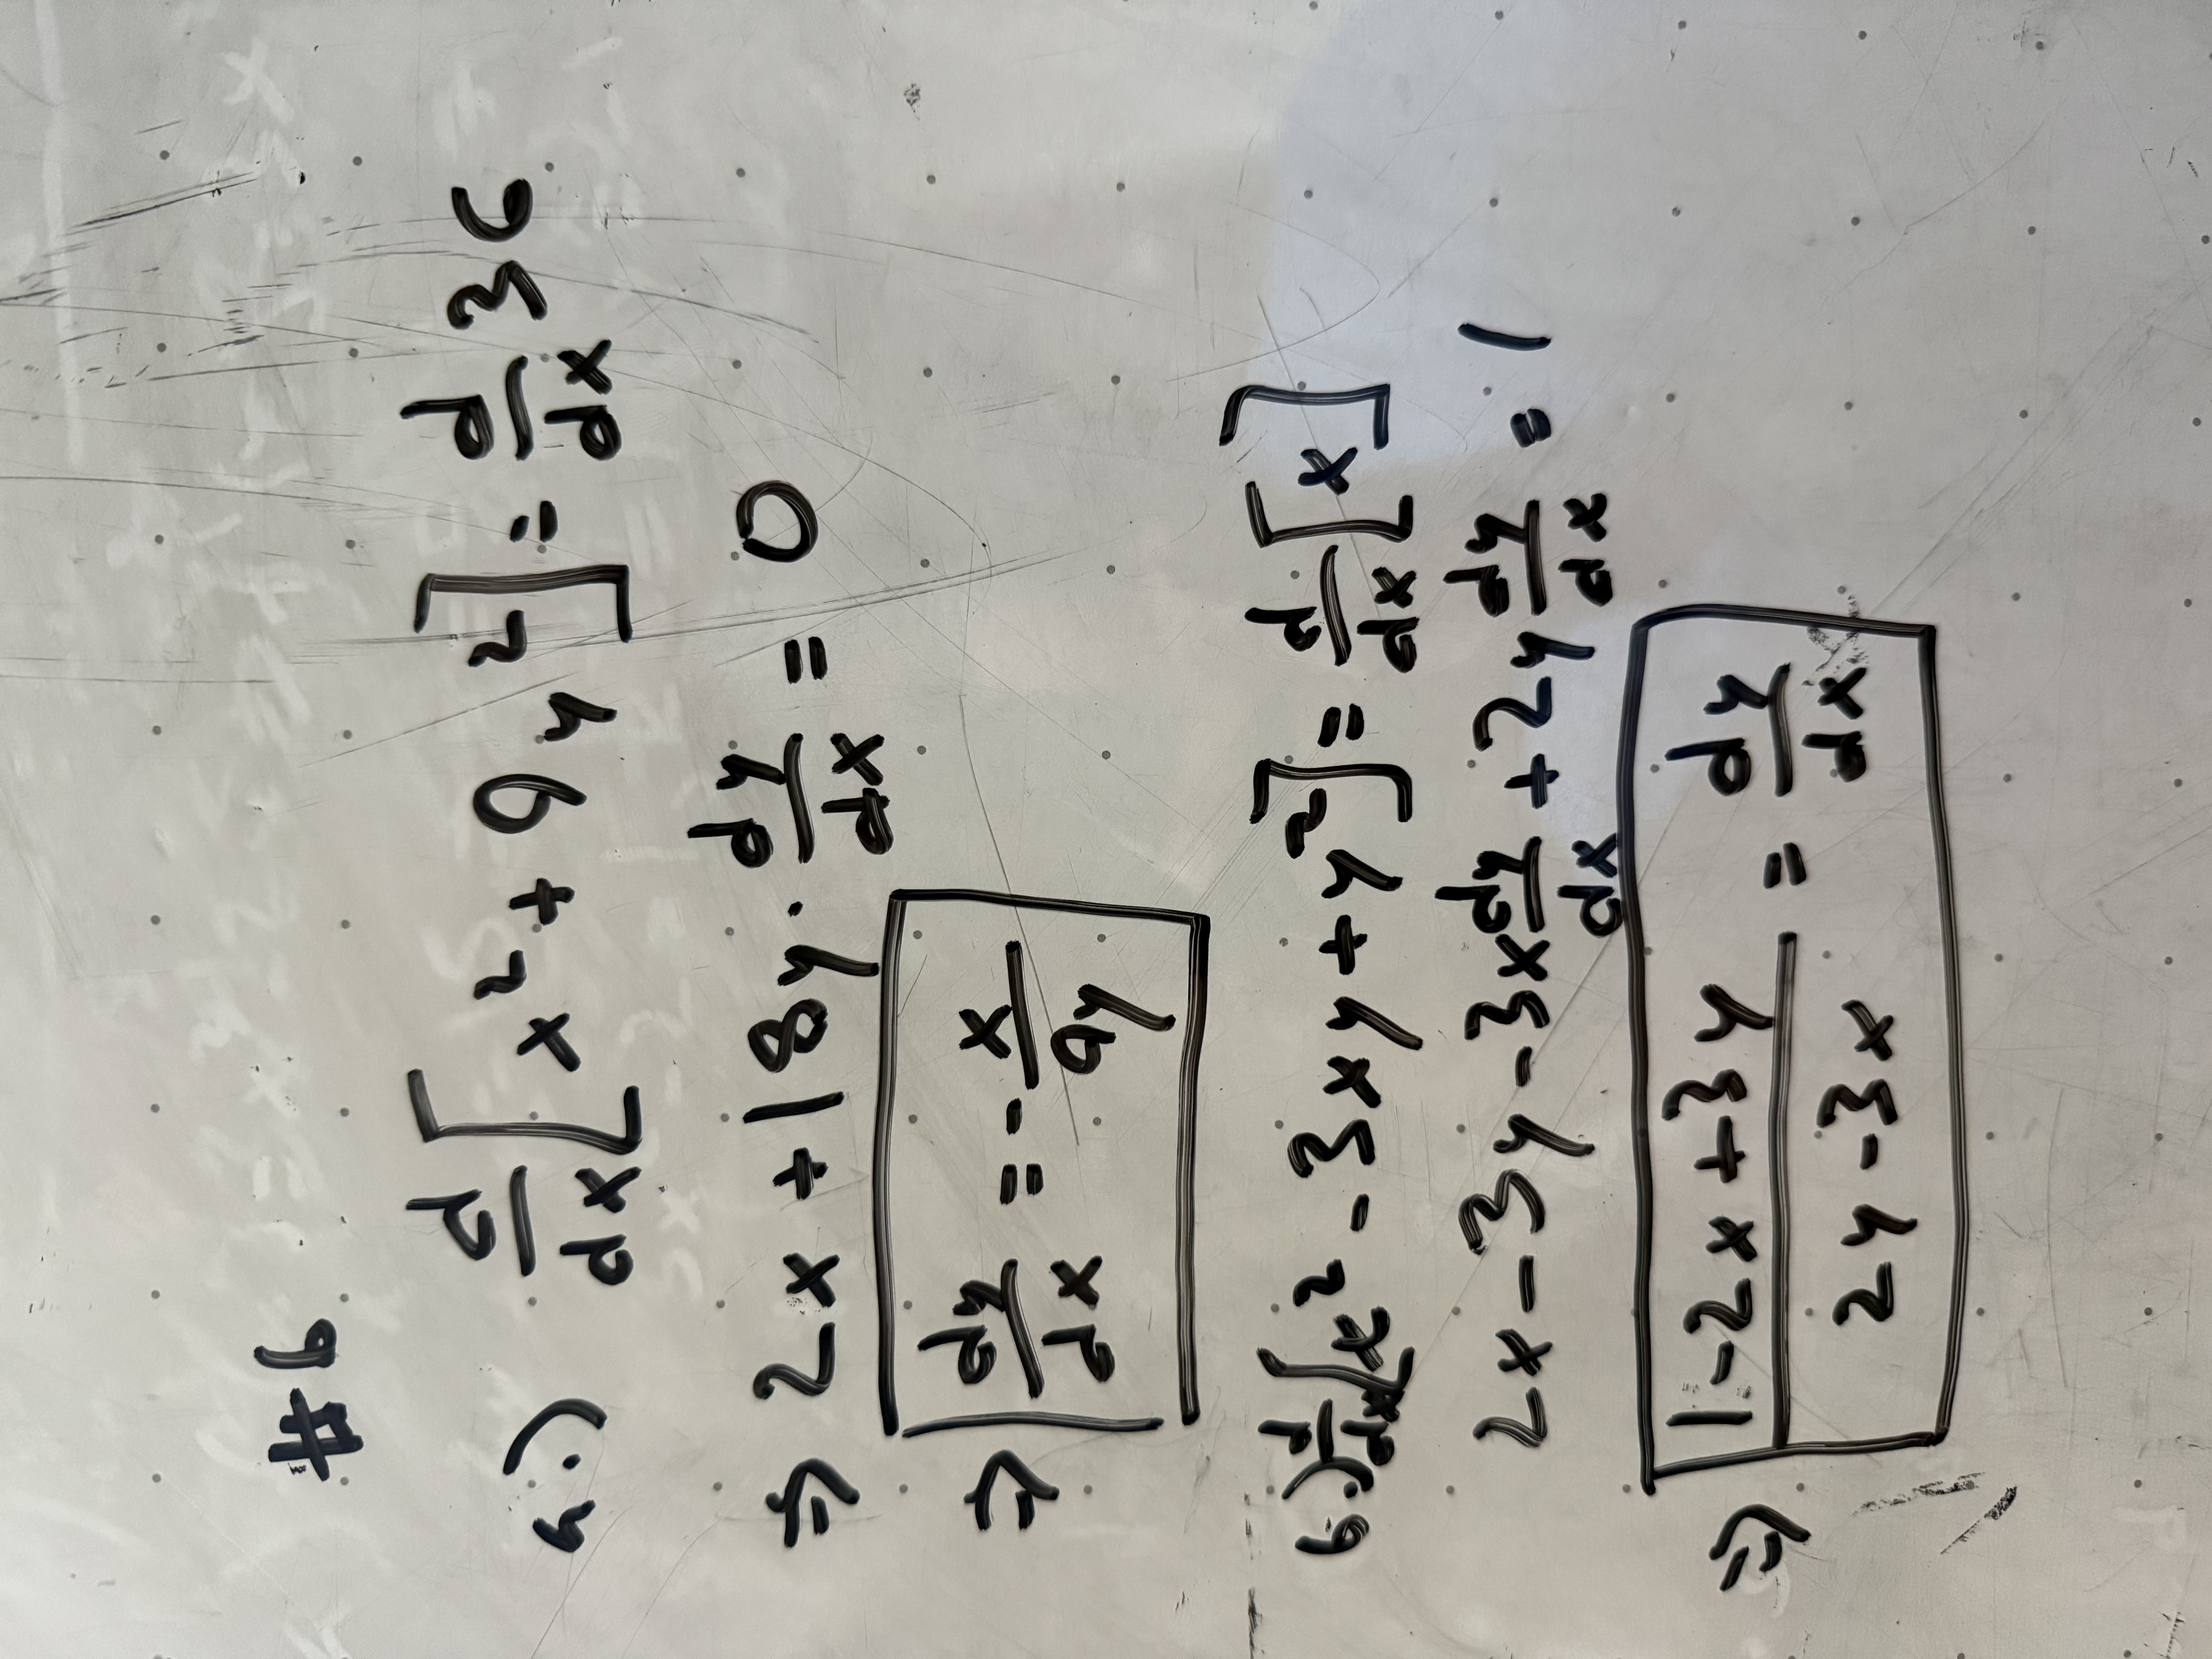 #6
a.) d/dx [x² + 9y²] = d/dx 36
⇒ 2x + 18y · dy/dx = 0
⇒ dy/dx = - x/9y
b.) d/dx [x² - 3xy + y²] = d/dx [x]
2x - 3y - 3x dy/dx + 2y dy/dx = 1
⇒ (1 - 2x + 3y)/(2y - 3x) = dy/dx